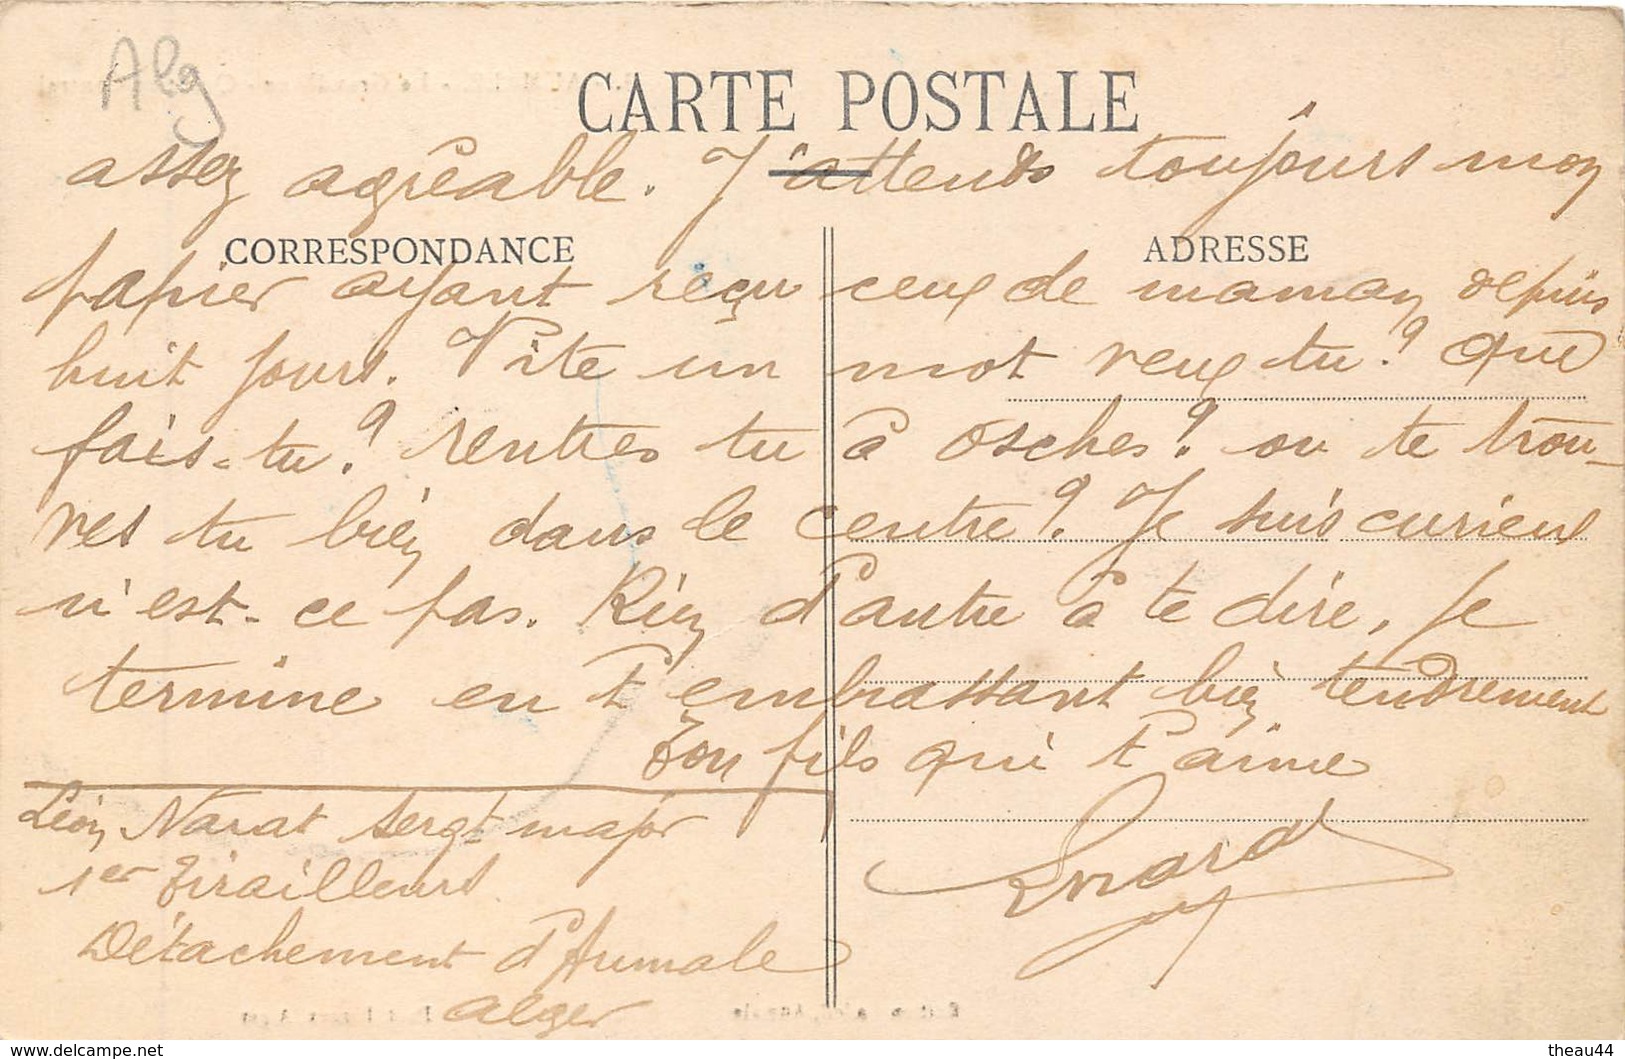 Alg
CARTE POSTALE
assez agréable. J'attends toujours mon
CORRESPONDANCE
ADRESSE
papier ayant reçu ceux de maman depuis
huit jours. Vite un mot veux tu? Que
fais-tu? rentres tu à Osches? ou te trou-
ves tu bien dans le centre? Je suis curieux
n'est-ce pas. Rien d'autre à te dire, je
termine en t'embrassant bien tendrement
Ton fils qui t'aime
Léon Navat sergt major
1er Tirailleurs
Détachement d'Aumale
Alger
theau44